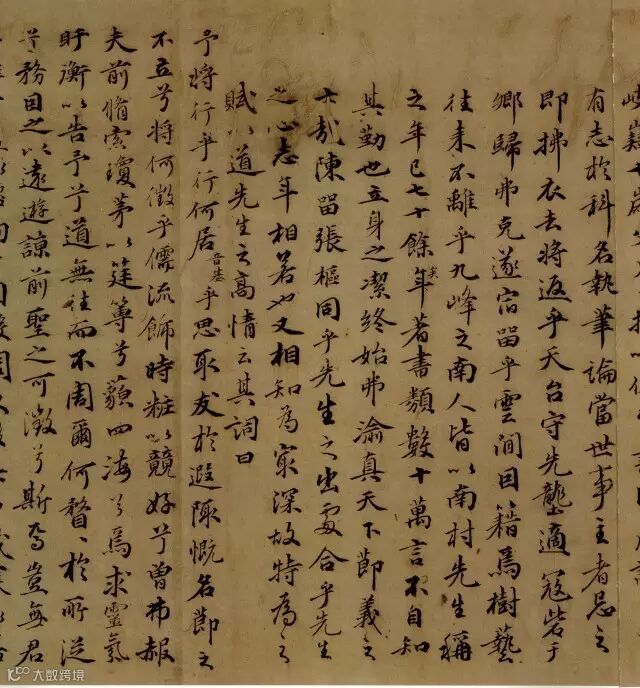 有志於科名執筆論當世事主者忌之
即拂衣去將返乎天台守先壟適寇砦于
鄉歸弗克遂宿留乎雲澗因籍焉樹藝
往来不離乎九峰之南人皆以南村先生稱
之年已七十餘矣年著書類數十萬言不自知
其勤也立身之潔終始弗渝真天下節義之
士哉陳留張樞同乎先生之出處合乎先生
之心志年相若也又相知為㝡深故特為之
賦以道先生之高情云其詞曰
予將行乎行何居音基乎思取友於遐陬慨名節之
不立兮將何徵乎儒流飾時粧以競好兮曾弗赧
夫前脩索瓊茅以筳篿兮藐四海兮焉求靈氛
盱衡以告予兮道無往而不周爾何瞀〻於所從
兮務因之以遠遊諒前聖之可徵兮斯焉豈無君
大数跨境